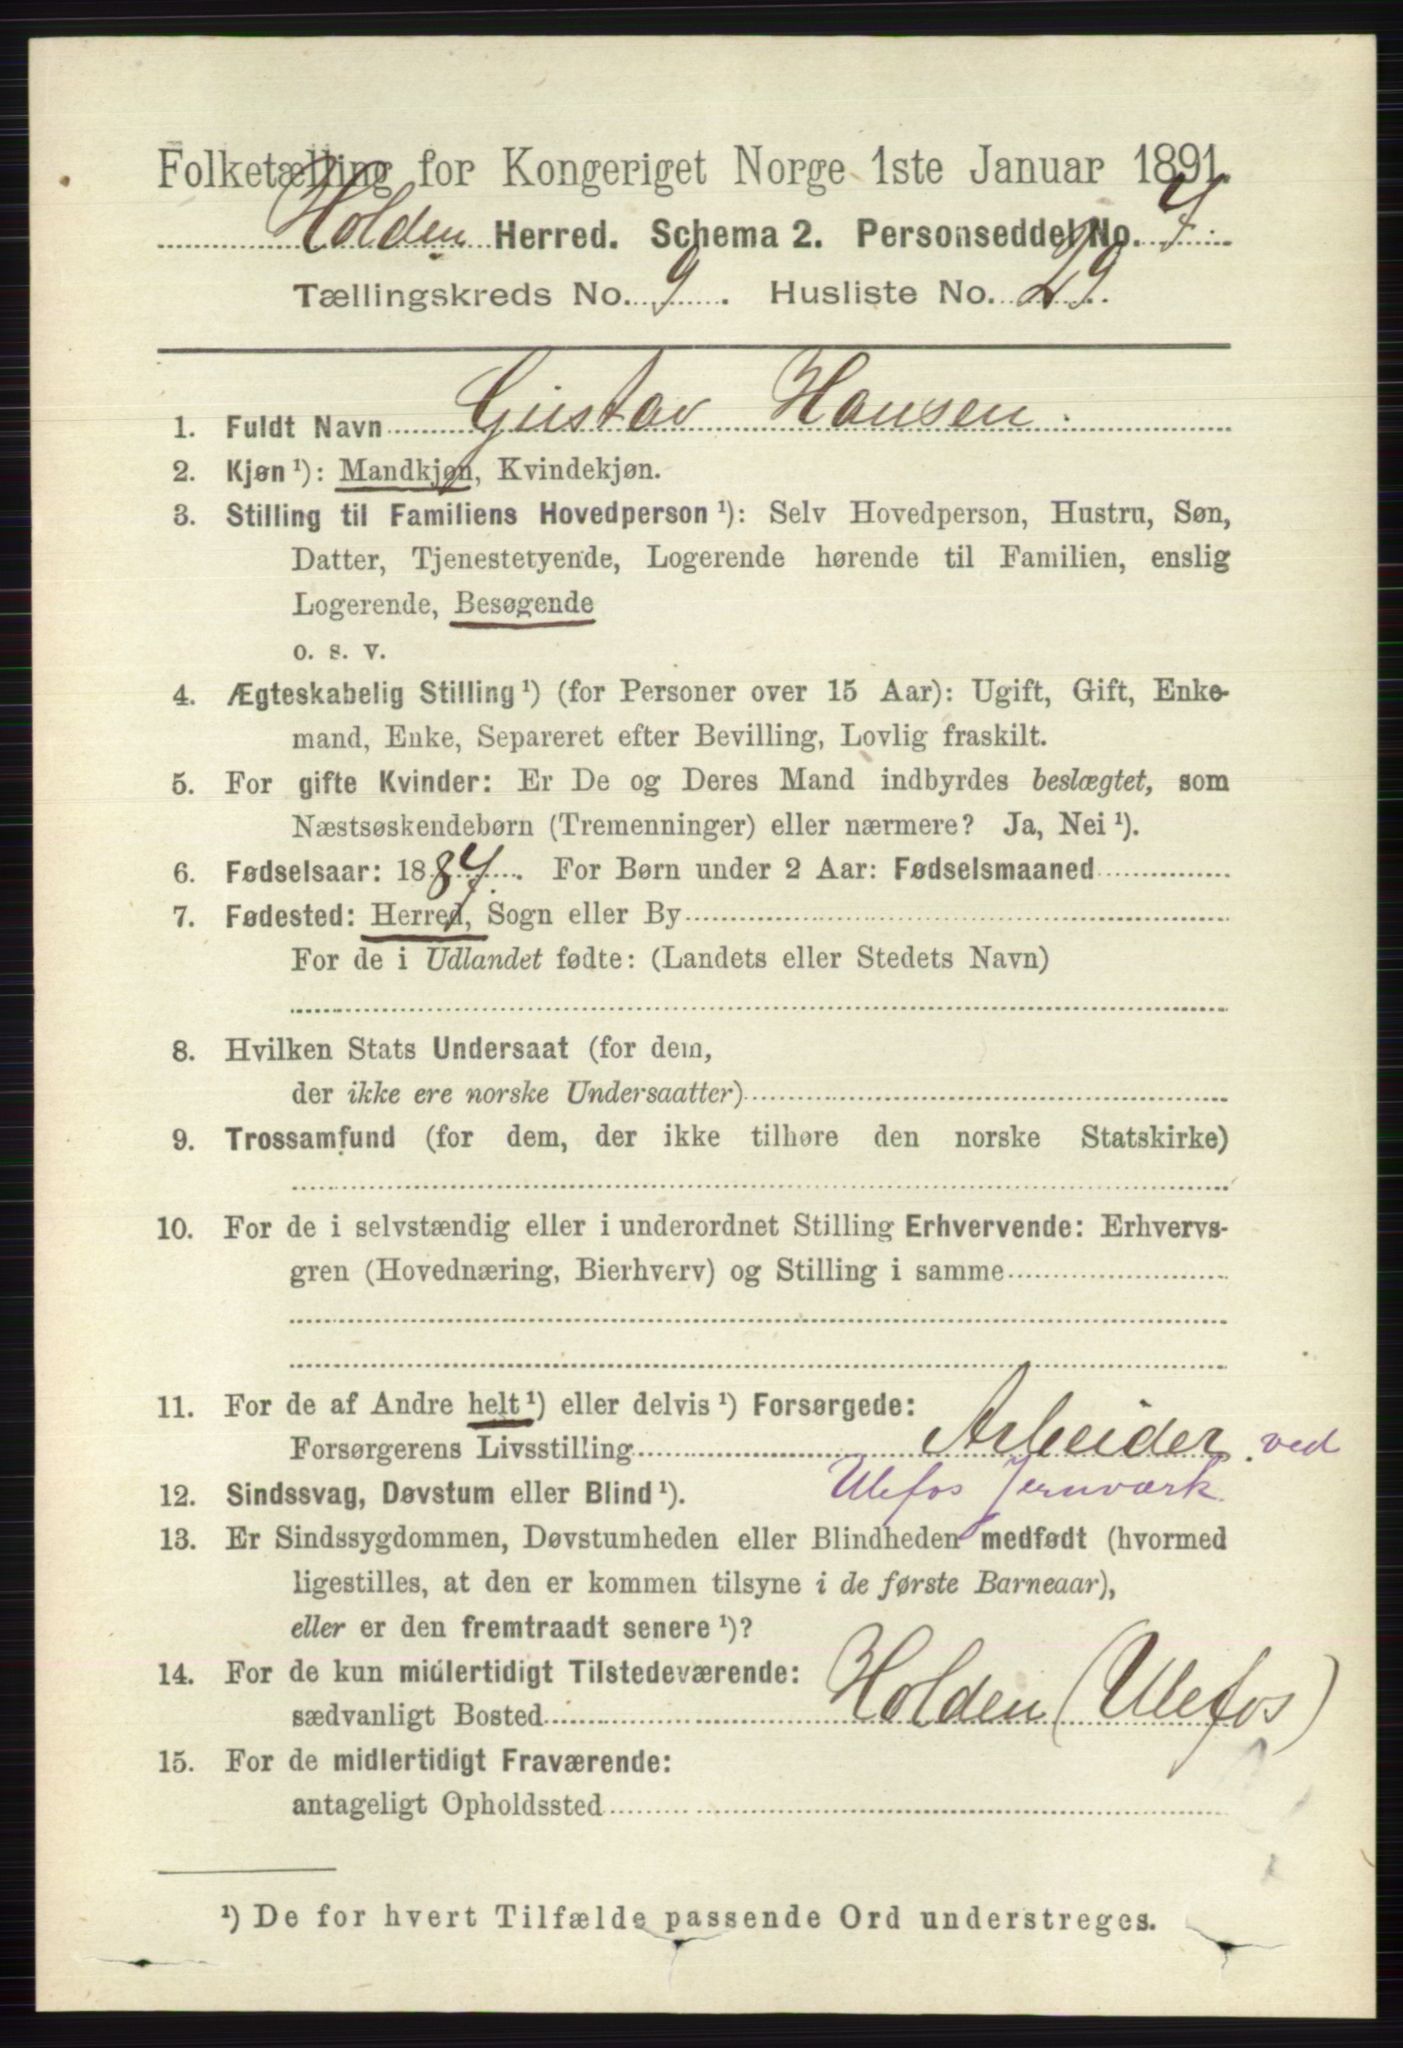 Folketælling for Kongeriget Norge 1ste Januar 1891.
Holden Herred. Schema 2. Personseddel No. 7.
Tællingskreds No. 9. Husliste No. 29.
1. Fuldt Navn Gustav Hansen.
2. Kjøn ¹): Mandkjøn, Kvindekjøn.
3. Stilling til Familiens Hovedperson ¹): Selv Hovedperson, Hustru, Søn,
Datter, Tjenestetyende, Logerende hørende til Familien, enslig
Logerende, Besøgende
o. s. v.
4. Ægteskabelig Stilling ¹) (for Personer over 15 Aar): Ugift, Gift, Enke-
mand, Enke, Separeret efter Bevilling, Lovlig fraskilt.
5. For gifte Kvinder: Er De og Deres Mand indbyrdes beslægtet, som
Næstsøskendebørn (Tremenninger) eller nærmere? Ja, Nei ¹).
6. Fødselsaar: 1887. For Børn under 2 Aar: Fødselsmaaned
7. Fødested: Herred, Sogn eller By
For de i Udlandet fødte: (Landets eller Stedets Navn)
8. Hvilken Stats Undersaat (for dem,
der ikke ere norske Undersaatter)
9. Trossamfund (for dem, der ikke tilhøre den norske Statskirke)
10. For de i selvstændig eller i underordnet Stilling Erhvervende: Erhvervs-
gren (Hovednæring, Bierhverv) og Stilling i samme
11. For de af Andre helt ¹) eller delvis ¹) Forsørgede:
Forsørgerens Livsstilling Arbeider. ved
Ulefos Jernværk
12. Sindssvag, Døvstum eller Blind ¹).
13. Er Sindssygdommen, Døvstumheden eller Blindheden medfødt (hvormed
ligestilles, at den er kommen tilsyne i de første Barneaar),
eller er den fremtraadt senere ¹)?
14. For de kun midlertidigt Tilstedeværende:
sædvanligt Bosted Holden (Ulefos)
15. For de midlertidigt Fraværende:
antageligt Opholdssted
¹) De for hvert Tilfælde passende Ord understreges.